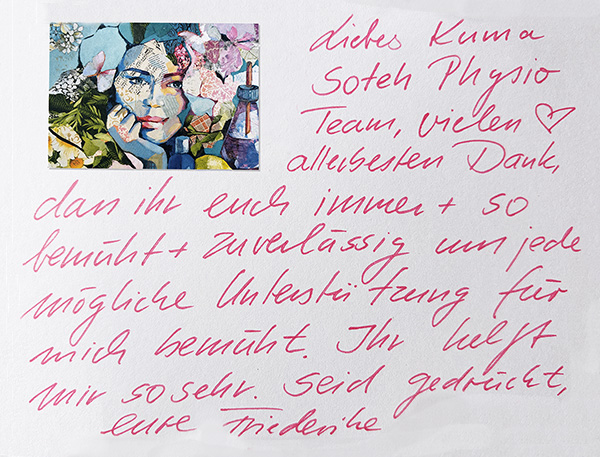 Liebes Kuma
Soteh Physio
Team, vielen ♡
allerbesten Dank,
dass ihr euch immer + so
bemüht + zuverlässig um jede
mögliche Unterstützung für
mich bemüht. Ihr helft
mir so sehr. Seid gedrückt,
eure Friederike